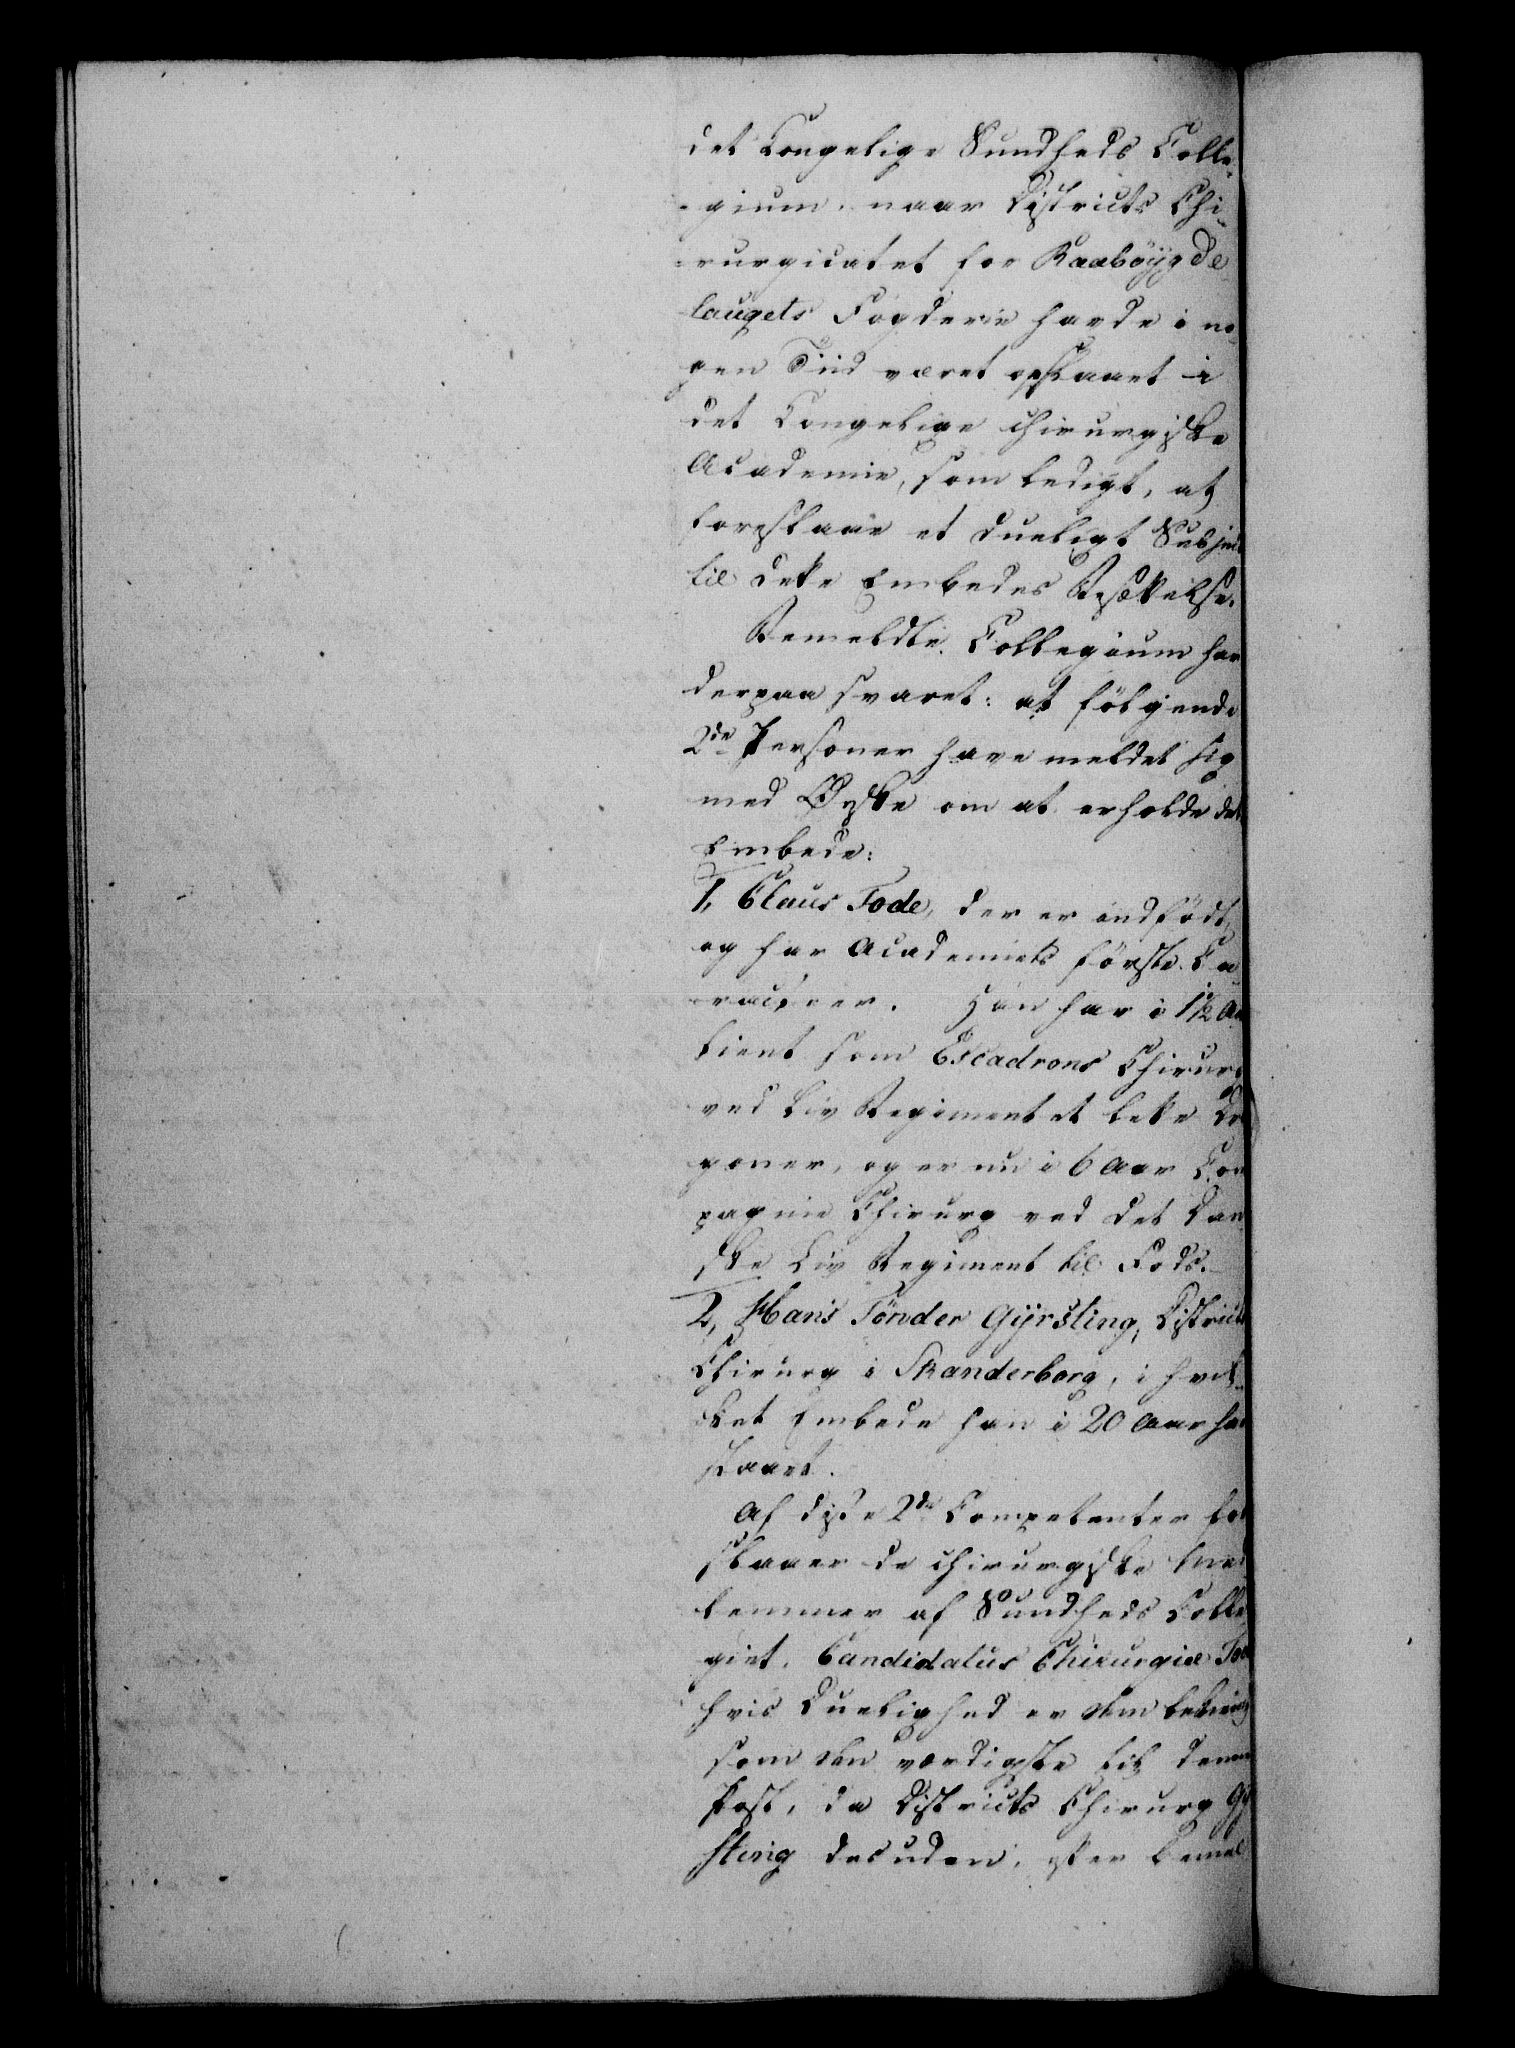 det Kongelige Sundheds Colle-
-gium, naar Districts Chi-
-rurgicatet for Raabøygde
laugets Fogderie havde i no-
gen Tiid været opslaaet i
det Kongelige chirurgiske
Academie, som ledigt, at
foreslaae et dueligt Subject
til dette Embedes Besættelse.
Bemeldte Collegium har
derpaa svaret: at følgende
2de Personer have meldet sig
med Ønske om at erholde det
Embede:
1, Claus Tode, der er indfødt,
og har Academiets første Ca-
-racteer. Han har i 1½ Aar
tient som Escadrons Chirurg
ved Liv Regimentet lette Dra
goner, og er nu i 6 Aar Com
pagnie Chirurg ved det Dan-
ske Liv Regiment til Fods.
2, Hans Tønder Gyrsting, District
Chirurg i Skanderborg, i hvil-
ket Embede han i 20 Aar har
staaet.
Af disse 2de Competenter fore
slaaer de chirurgiske Med
lemmer af Sundheds Colle
giet, Candidatus Chirurgiæ Tode
hvis Duelighed er dem bekiendt
som den værdigste til denne
Post, da Districts Chirurg Gyr
sting desuden, efter bemel